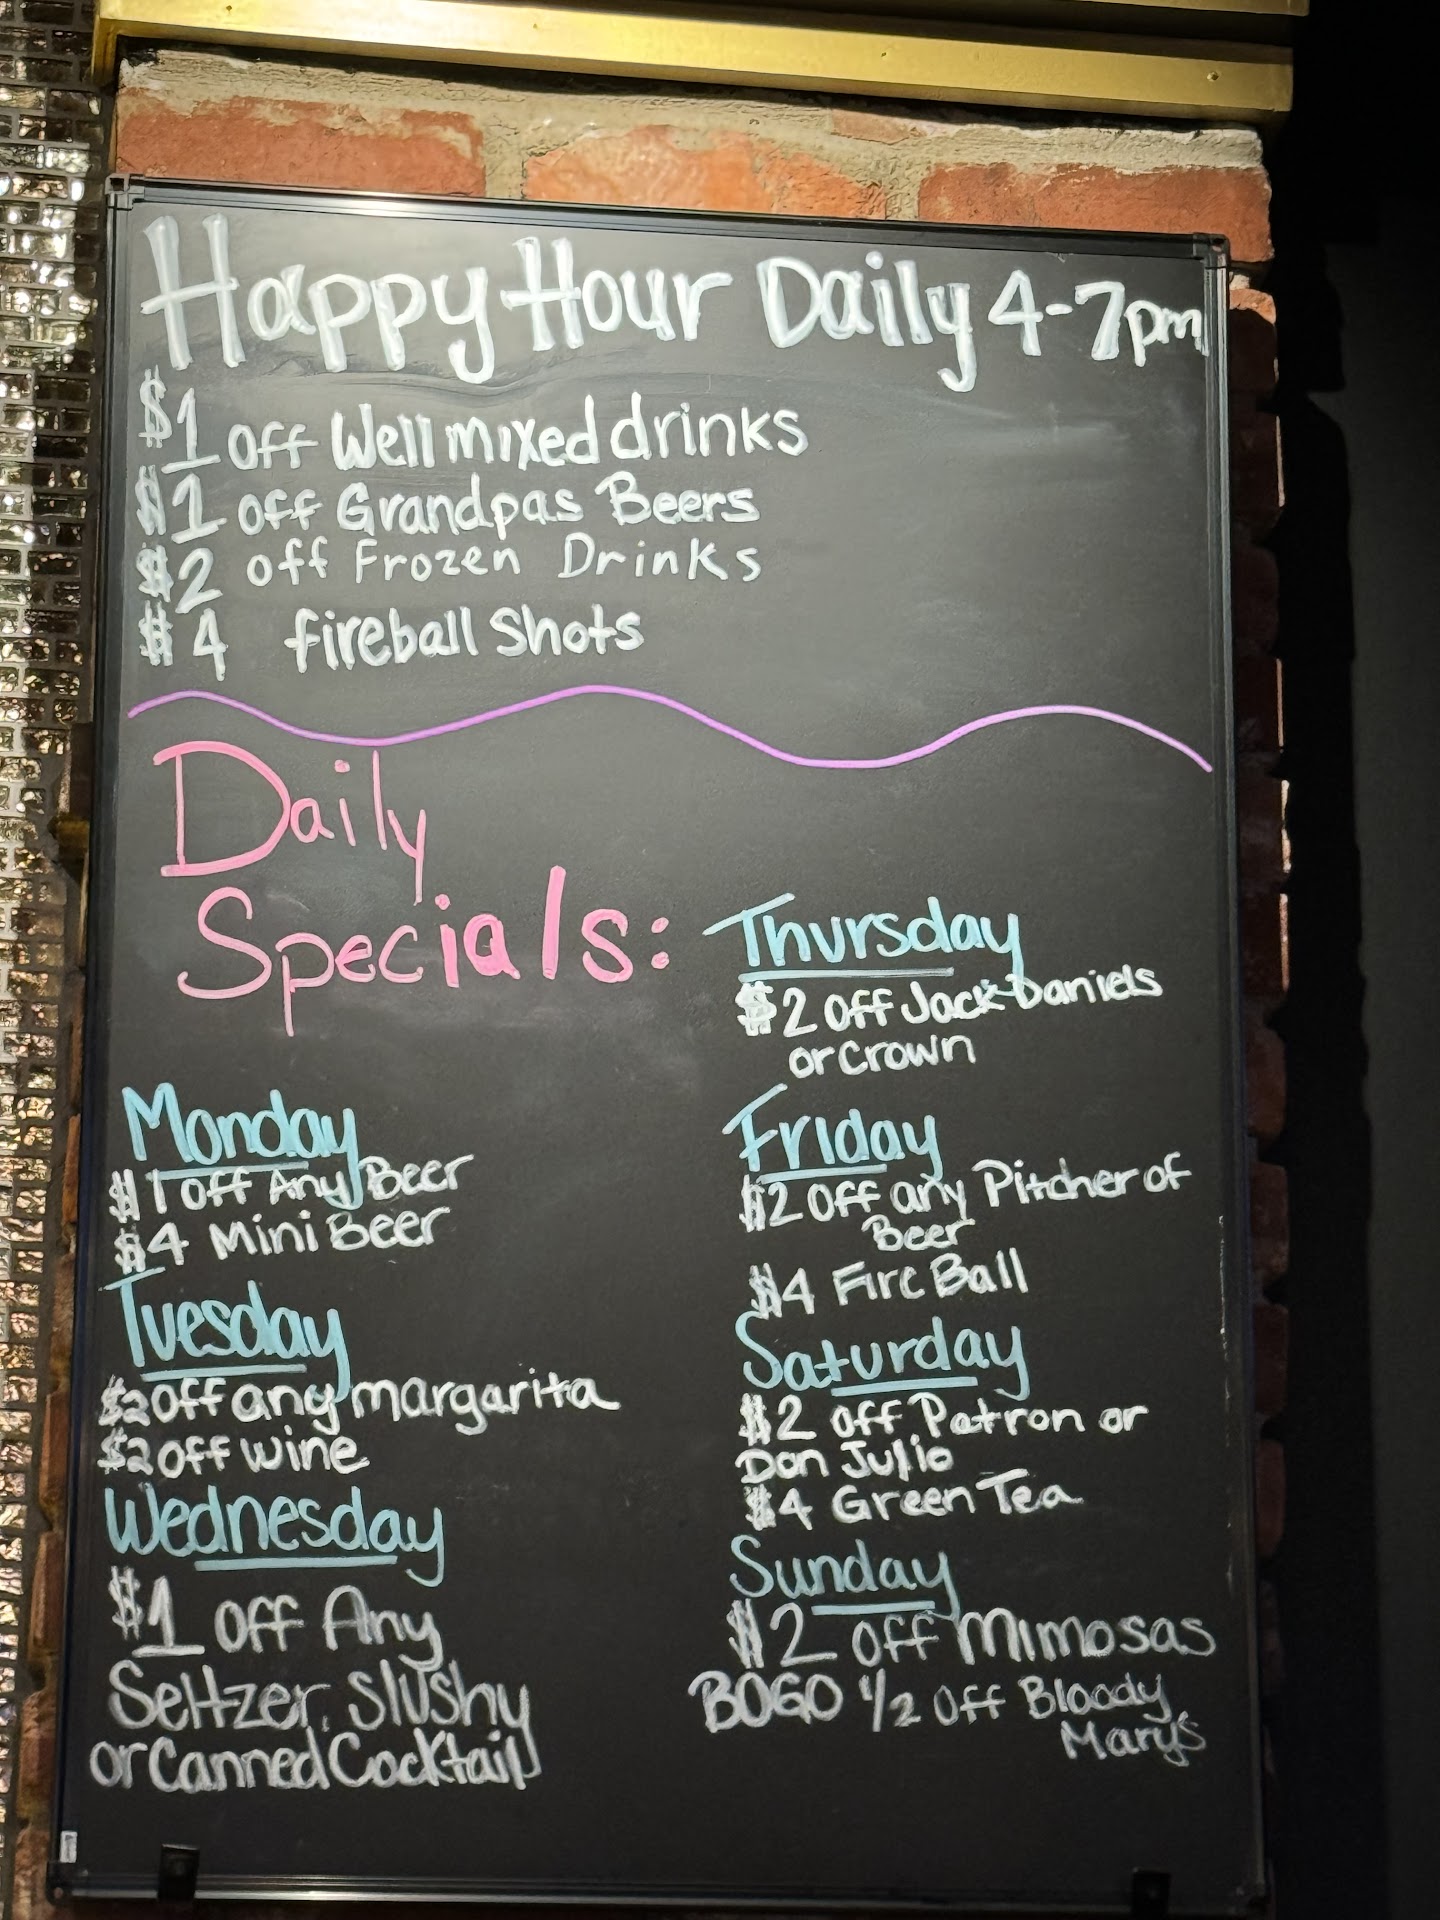 Happy Hour Daily 4-7pm
$1 off Well mixed drinks
$1 off Grandpas Beers
$2 off Frozen Drinks
$4 fireball Shots
Daily
Specials:
Monday
$1 off Any Beer
$4 Mini Beer
Tuesday
$2 off any margarita
$2 off wine
Wednesday
$1 off Any
Seltzer, Slushy
or Canned Cocktail
Thursday
$2 off Jack Daniels
or Crown
Friday
$2 off any Pitcher of
Beer
$4 Fire Ball
Saturday
$2 off Patron or
Don Julio
$4 Green Tea
Sunday
$2 off Mimosas
BOGO 1/2 off Bloody
Marys